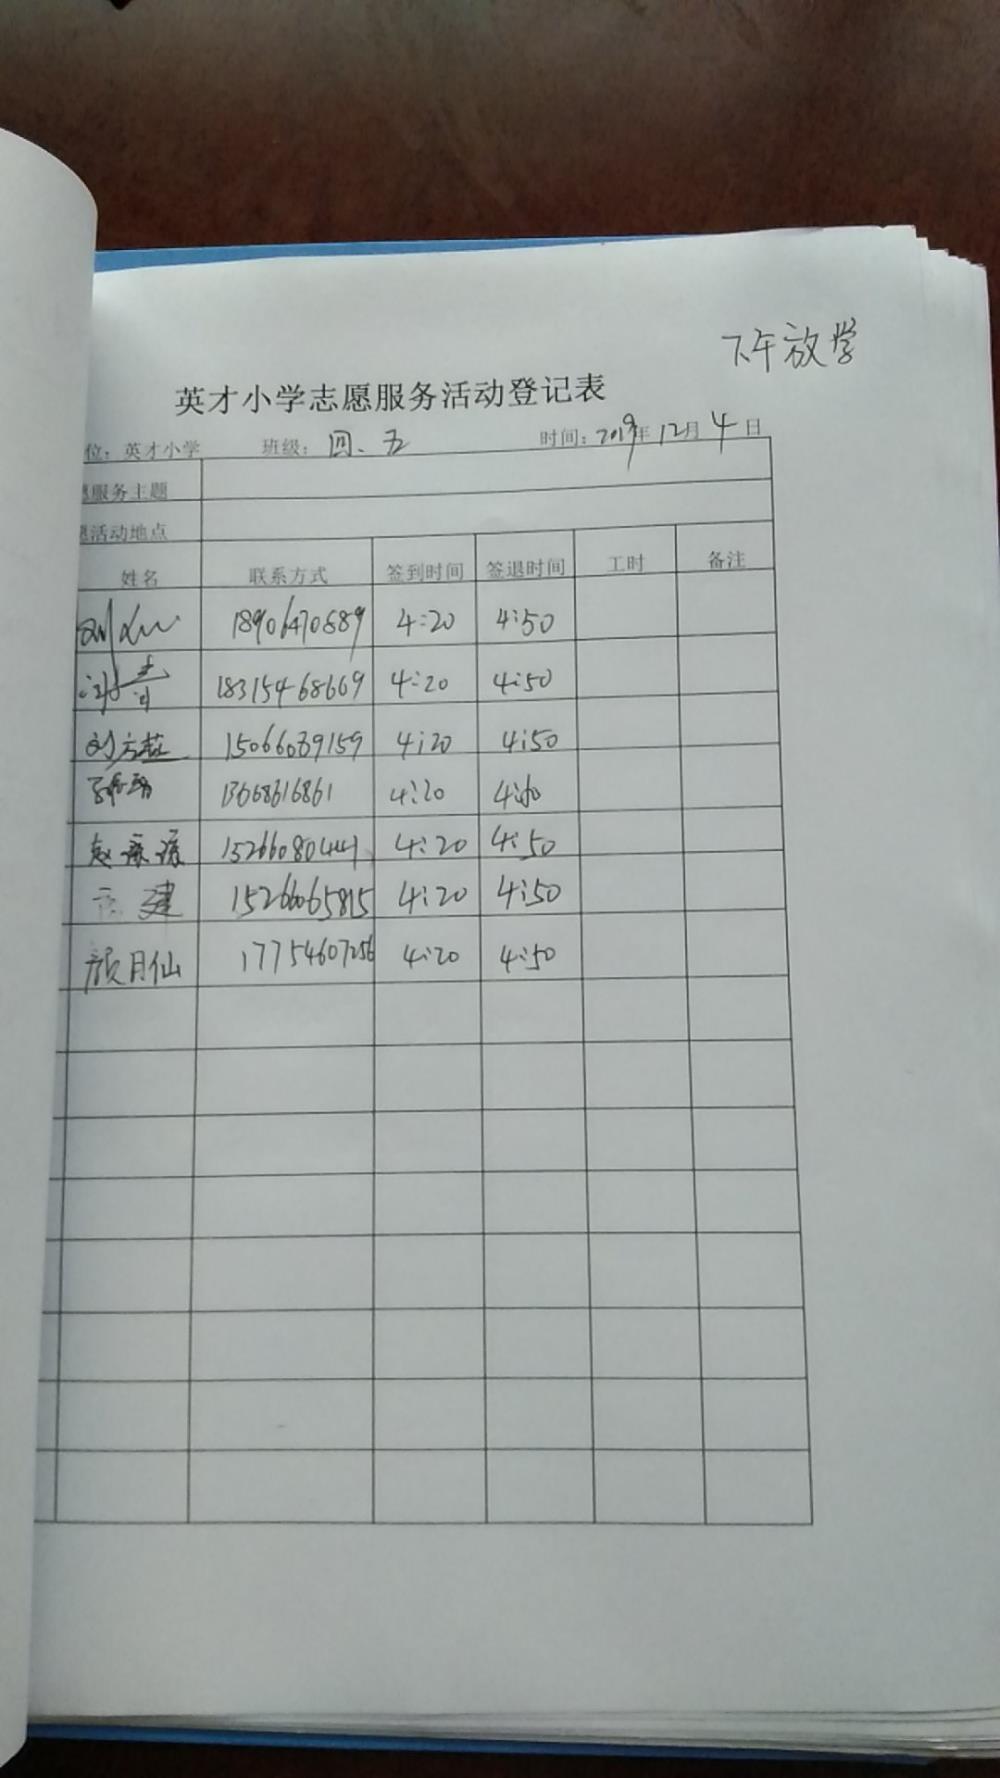 下午放学
英才小学志愿服务活动登记表
位：英才小学 班级：四、五 时间：2019年12月4日
服务主题
活动地点
姓名 联系方式 签到时间 签退时间 工时 备注
刘 18906470689 4:20 4:50
春 18315468669 4:20 4:50
刘方 15066039159 4:20 4:50
13668616861 4:20
赵 4:20 4:50
建 15266065815 4:20 4:50
颜月仙 17754607256 4:20 4:50